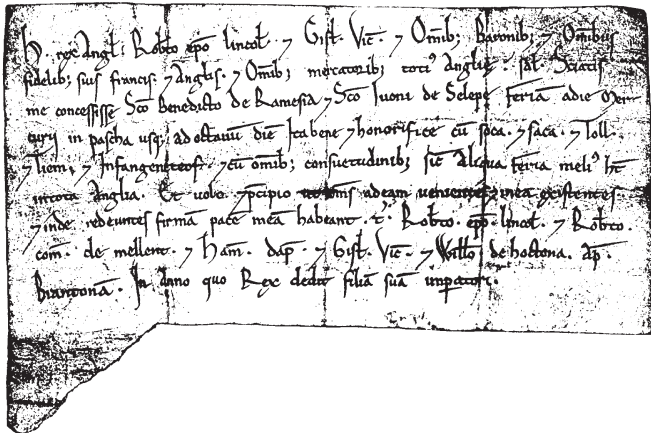 H. rex Angl; Robto epo lincol. ⁊ Gisl. Vic. ⁊ Omib; Baronib; ⁊ Omibus
fidelib; suis francis. ⁊ Anglis. ⁊ Omib; mercatorib; toti⁹ Anglie. sal. Sciatis
me concessisse Sco Benedicto de Ramesia ⁊ Sco Iuoni de Selepe feriā adie Mer
curii in pascha usq; ad octauū diē Ita bene ⁊ honorifice cū soca. ⁊ saca. ⁊ Toll.
⁊ Tiem. ⁊ Infangenteof. ⁊ cū omib; consuetudinib; sic Aliqua feria meli⁹ ht
intota Anglia. Et uolo ⁊ pcipio ut oms adeam uenientes ⁊ inea existentes
⁊ inde redeuntes firmā pacē meā habeant. T. Robto. epo. lincol. ⁊ Robto.
com. de mellent. ⁊ Ham. dap. ⁊ Gisl. Vic. ⁊ Willo de hoctona. Ap.
Bramtonā. In āno quo Rex dedit filiā suā inpatori.